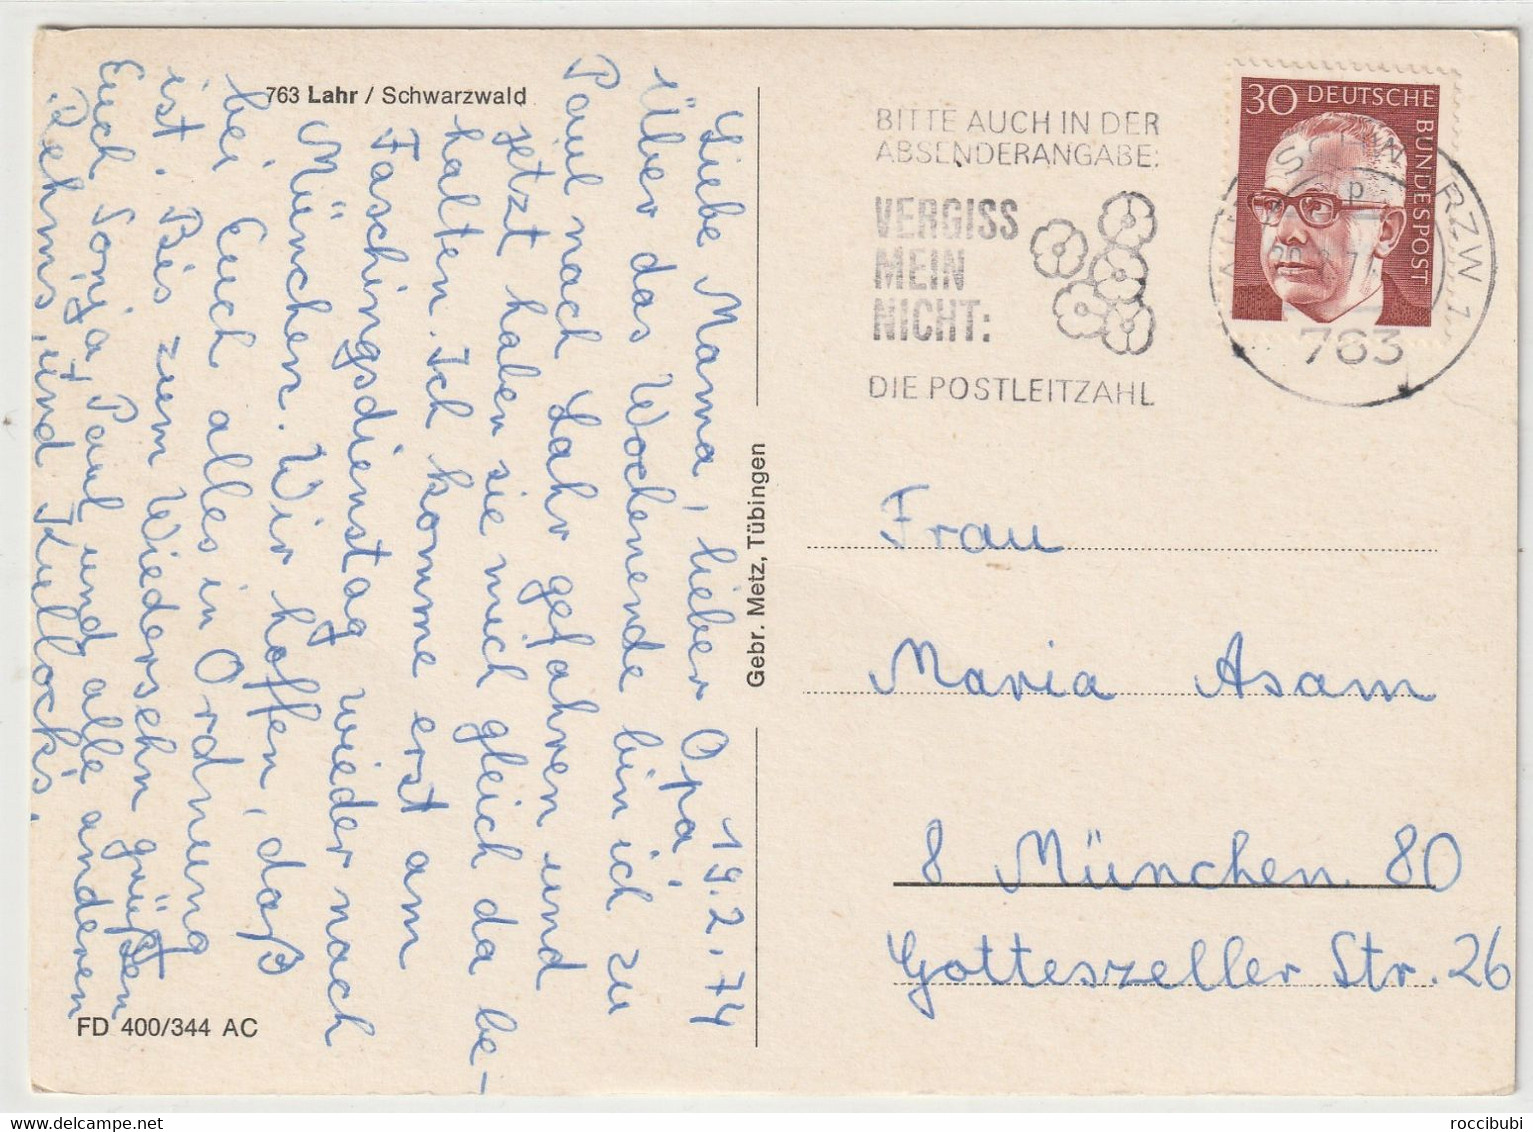 763 Lahr / Schwarzwald
19.2.74
Liebe Mama, lieber Opa,
über das Wochenende bin ich zu
Paul nach Lahr gefahren und
jetzt haben sie mich gleich da be-
halten. Ich komme erst am
Faschingsdienstag wieder nach
München. Wir hoffen, daß
bei Euch alles in Ordnung
ist. Bis zum Wiedersehn grüßen
Euch Sonja, Paul und alle anderen
Rehms und Kullocks.
FD 400/344 AC
Gebr. Metz, Tübingen
BITTE AUCH IN DER
ABSENDERANGABE:
VERGISS
MEIN
NICHT:
DIE POSTLEITZAHL
30 DEUTSCHE
BUNDESPOST
763
Frau
Maria Asam
8 München 80
Gotteszeller Str. 26
roccibubi